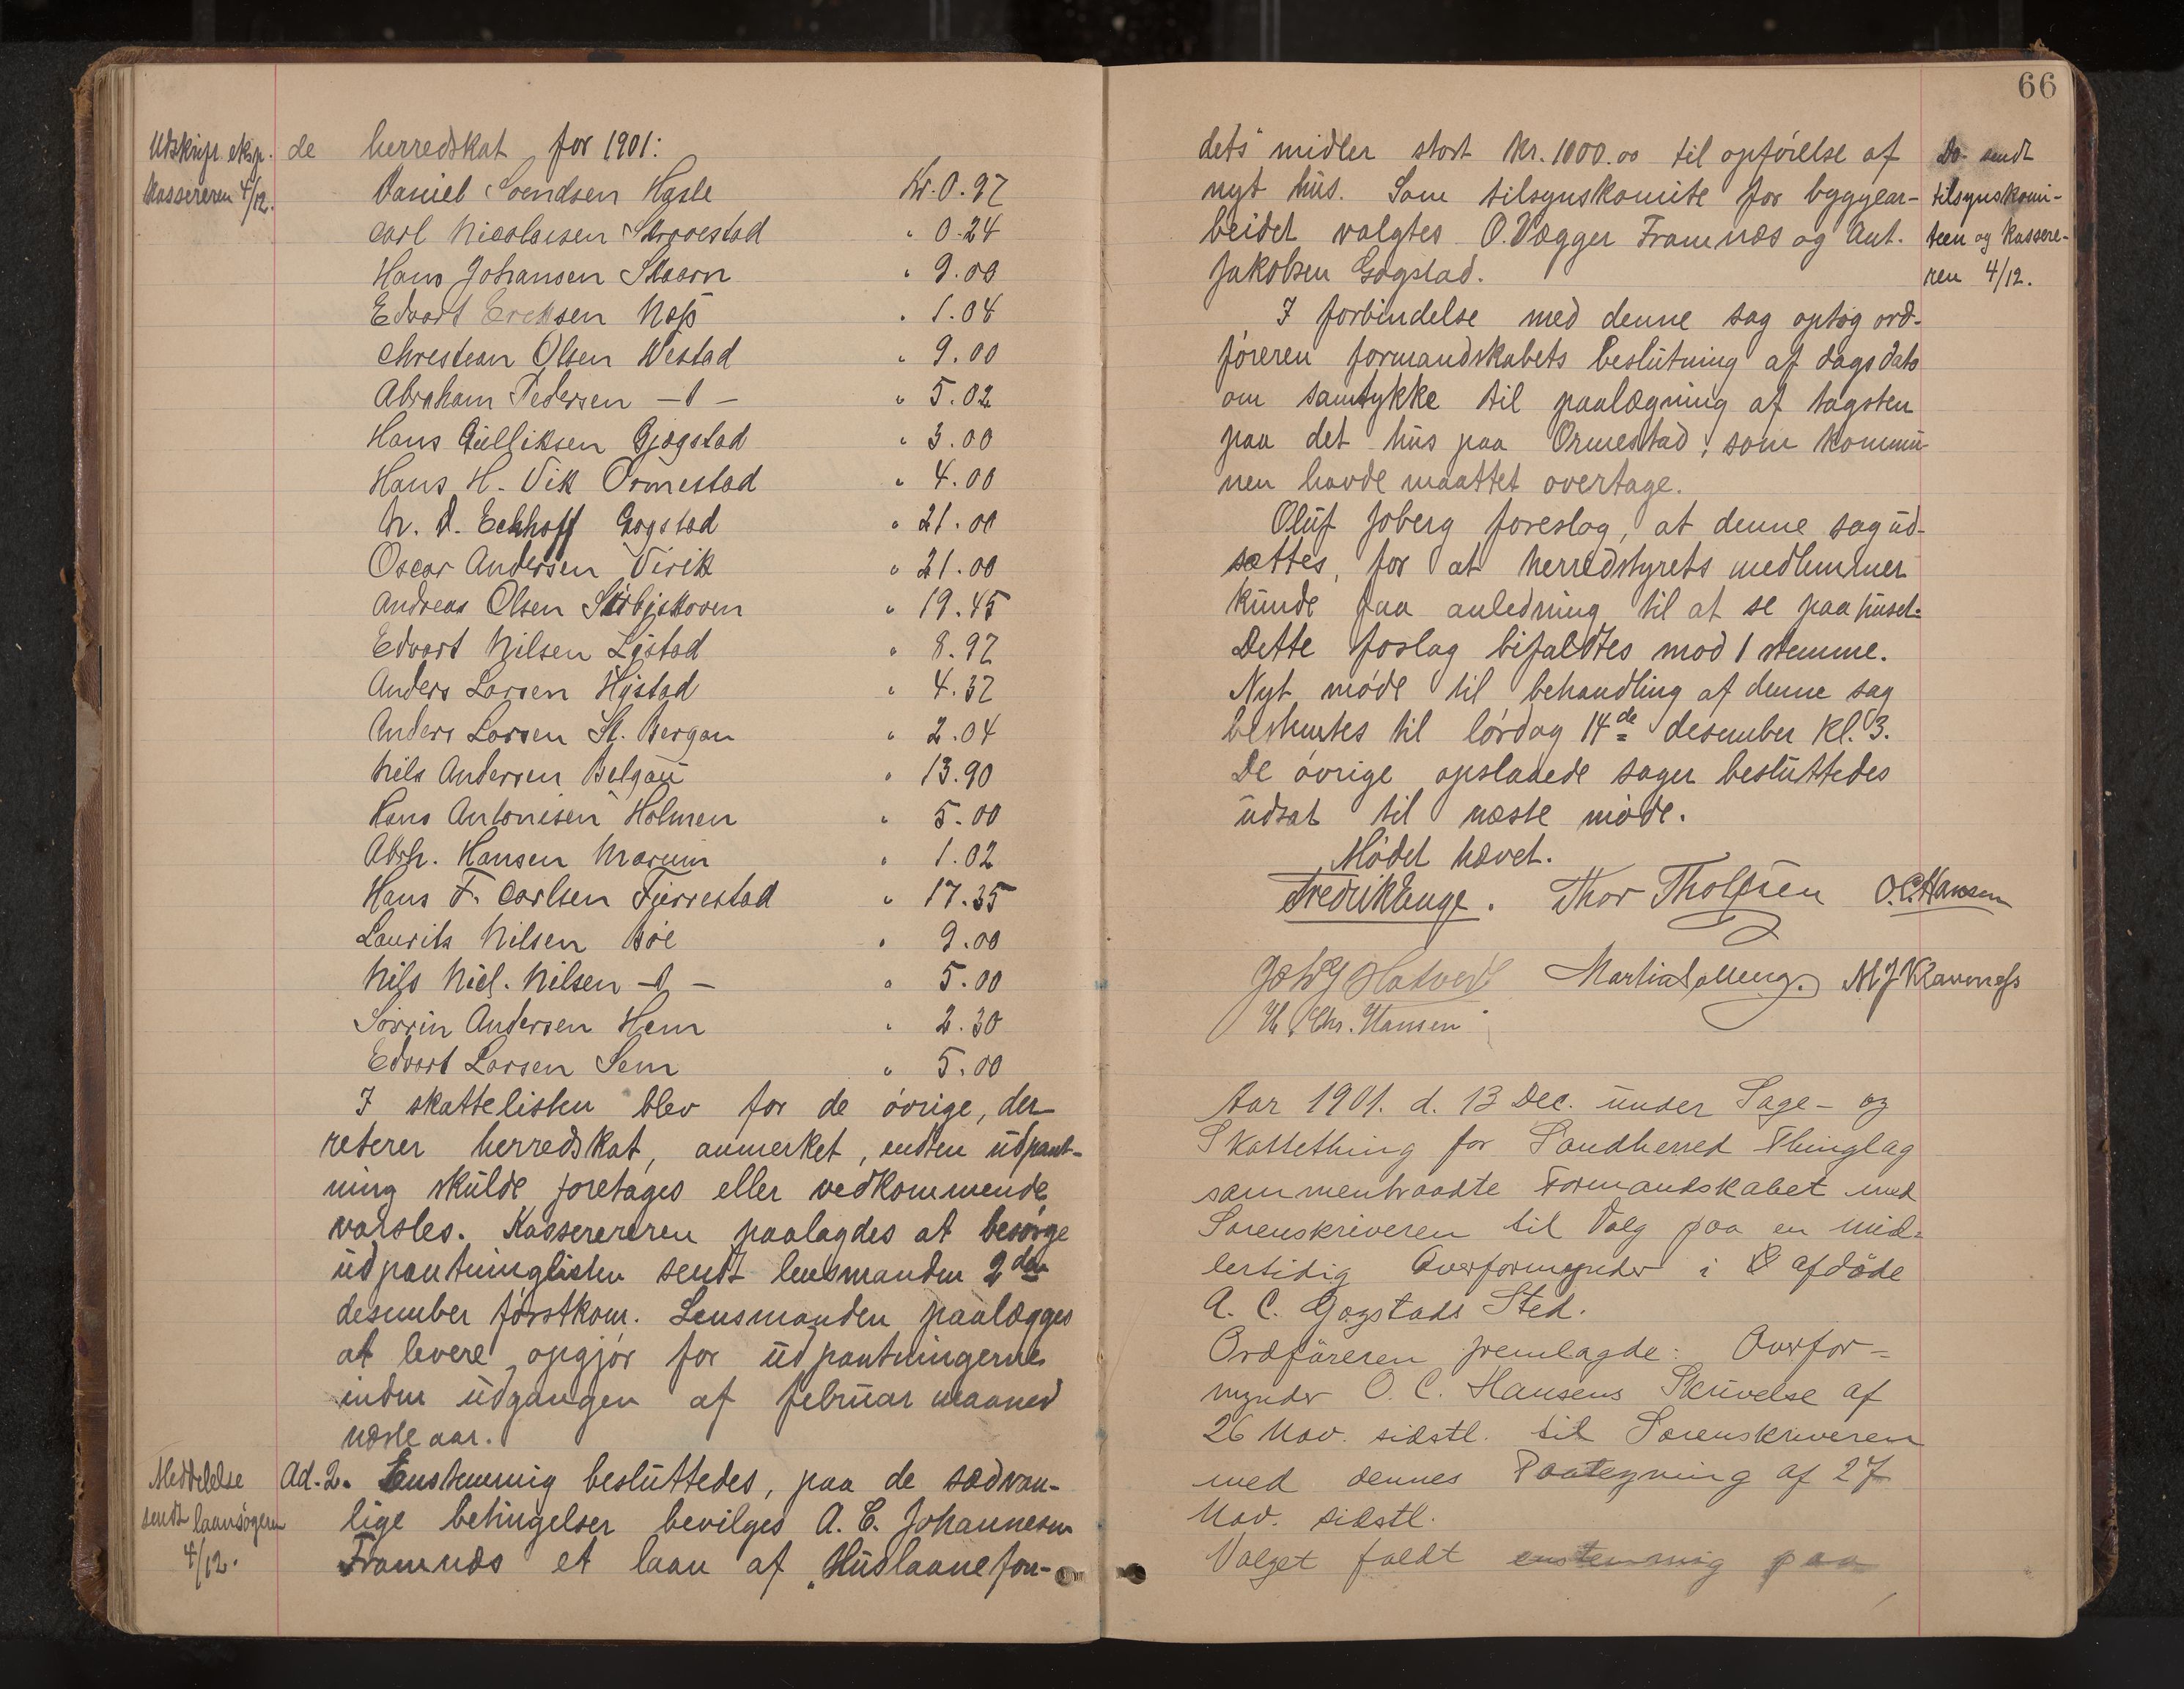 66
Udskrift eksp.
kassereren 4/12.
de herredskat for 1901:
Daniel Svendsen Hasle Kr. 0.97
Carl Nicolaisen " 0.24
Hans Johansen " 9.00
Edvart Ereksen Næs " 1.04
Chrestean Olsen Westad " 9.00
Abraham Pedersen — " — " 5.02
Hans Gulliksen Gjøgstad " 3.00
Hans H. Vik Ormestad " 4.00
N. A. Eckhoff Gogstad " 21.00
Oscar Andersen Virik " 21.00
Andreas Olsen " 19.45
Edvart Nilsen " 8.97
Anders Larsen Hystad " 4.37
Anders Larsen St. Bergan " 2.04
Nils Andersen " 13.90
Hans Antonisen Holmen " 5.00
Abrh. Hansen Marum " 1.02
Hans F. Carlsen Furrestad " 17.35
Laurits Nilsen Bøe " 9.00
Nils Niel. Nilsen — " — " 5.00
Sørrin Andersen Hem " 2.30
Edvart Larsen Sem " 5.00
I skattelisten blev for de øvrige, der
resterer herredskat, anmerket, enten udpant-
ning skulde foretages eller vedkommende
varsles. Kasserereren paalagdes at besørge
udpantninglisten sendt lensmanden 2den
desember førstkom. Lensmanden paalægges
at levere opgjør for udpantningerne
inden udgangen af februar maaned
næste aar.
Meddelelse
sendt laansøgeren
4/12.
Ad. 2. Enstemmig besluttedes, paa de sædvan-
lige betingelser bevilges A. C. Johannesen
Framnæs et laan af „Huslaanefon-
dets" midler stort Kr. 1000.00 til opførelse af
nyt hus. Som tilsynskomite for byggear-
beidet valgtes O. Vægger Framnæs og Ant.
Jakobsen Gogstad.
Do. sendt
tilsynskomi-
teen og kassere-
ren 4/12.
I forbindelse med denne sag optog ord-
føreren formandskabets beslutning af dags dato
om samtykke til paalægning af tagsten
paa det hus paa Ormestad, som kommu-
nen havde maattet overtage.
Oluf Joberg foreslog, at denne sag ud-
sættes, for at herredstyrets medlemmer
kunde faa anledning til at se paa huset.
Dette forslag bifaldtes mod 1 stemme.
Nyt møde til behandling af denne sag
bestemtes til lørdag 14de desember kl. 3.
De øvrige opslaaede sager besluttedes
udsat til næste møde.
Mødet hævet.
Fredrik Enge. Thor Tholfsen O. C. Hansen
M J Klavness
H. Chr. Hansen
Aar 1901. d. 13 Dec. under Sage- og
Skattething for Sandherred Thinglag
sammentraadte Formandskabet med
Sorenskriveren til Valg paa en mid-
lertidig Overformynder i afdøde
A. C. Gogstads Sted.
Ordføreren fremlagde: Overfor-
mynder O. C. Hansens Skrivelse af
26 Nov. sidstl. til Sorenskriveren
med dennes Paategning af 27
Nov. sidstl.
Valget faldt enstemmig paa